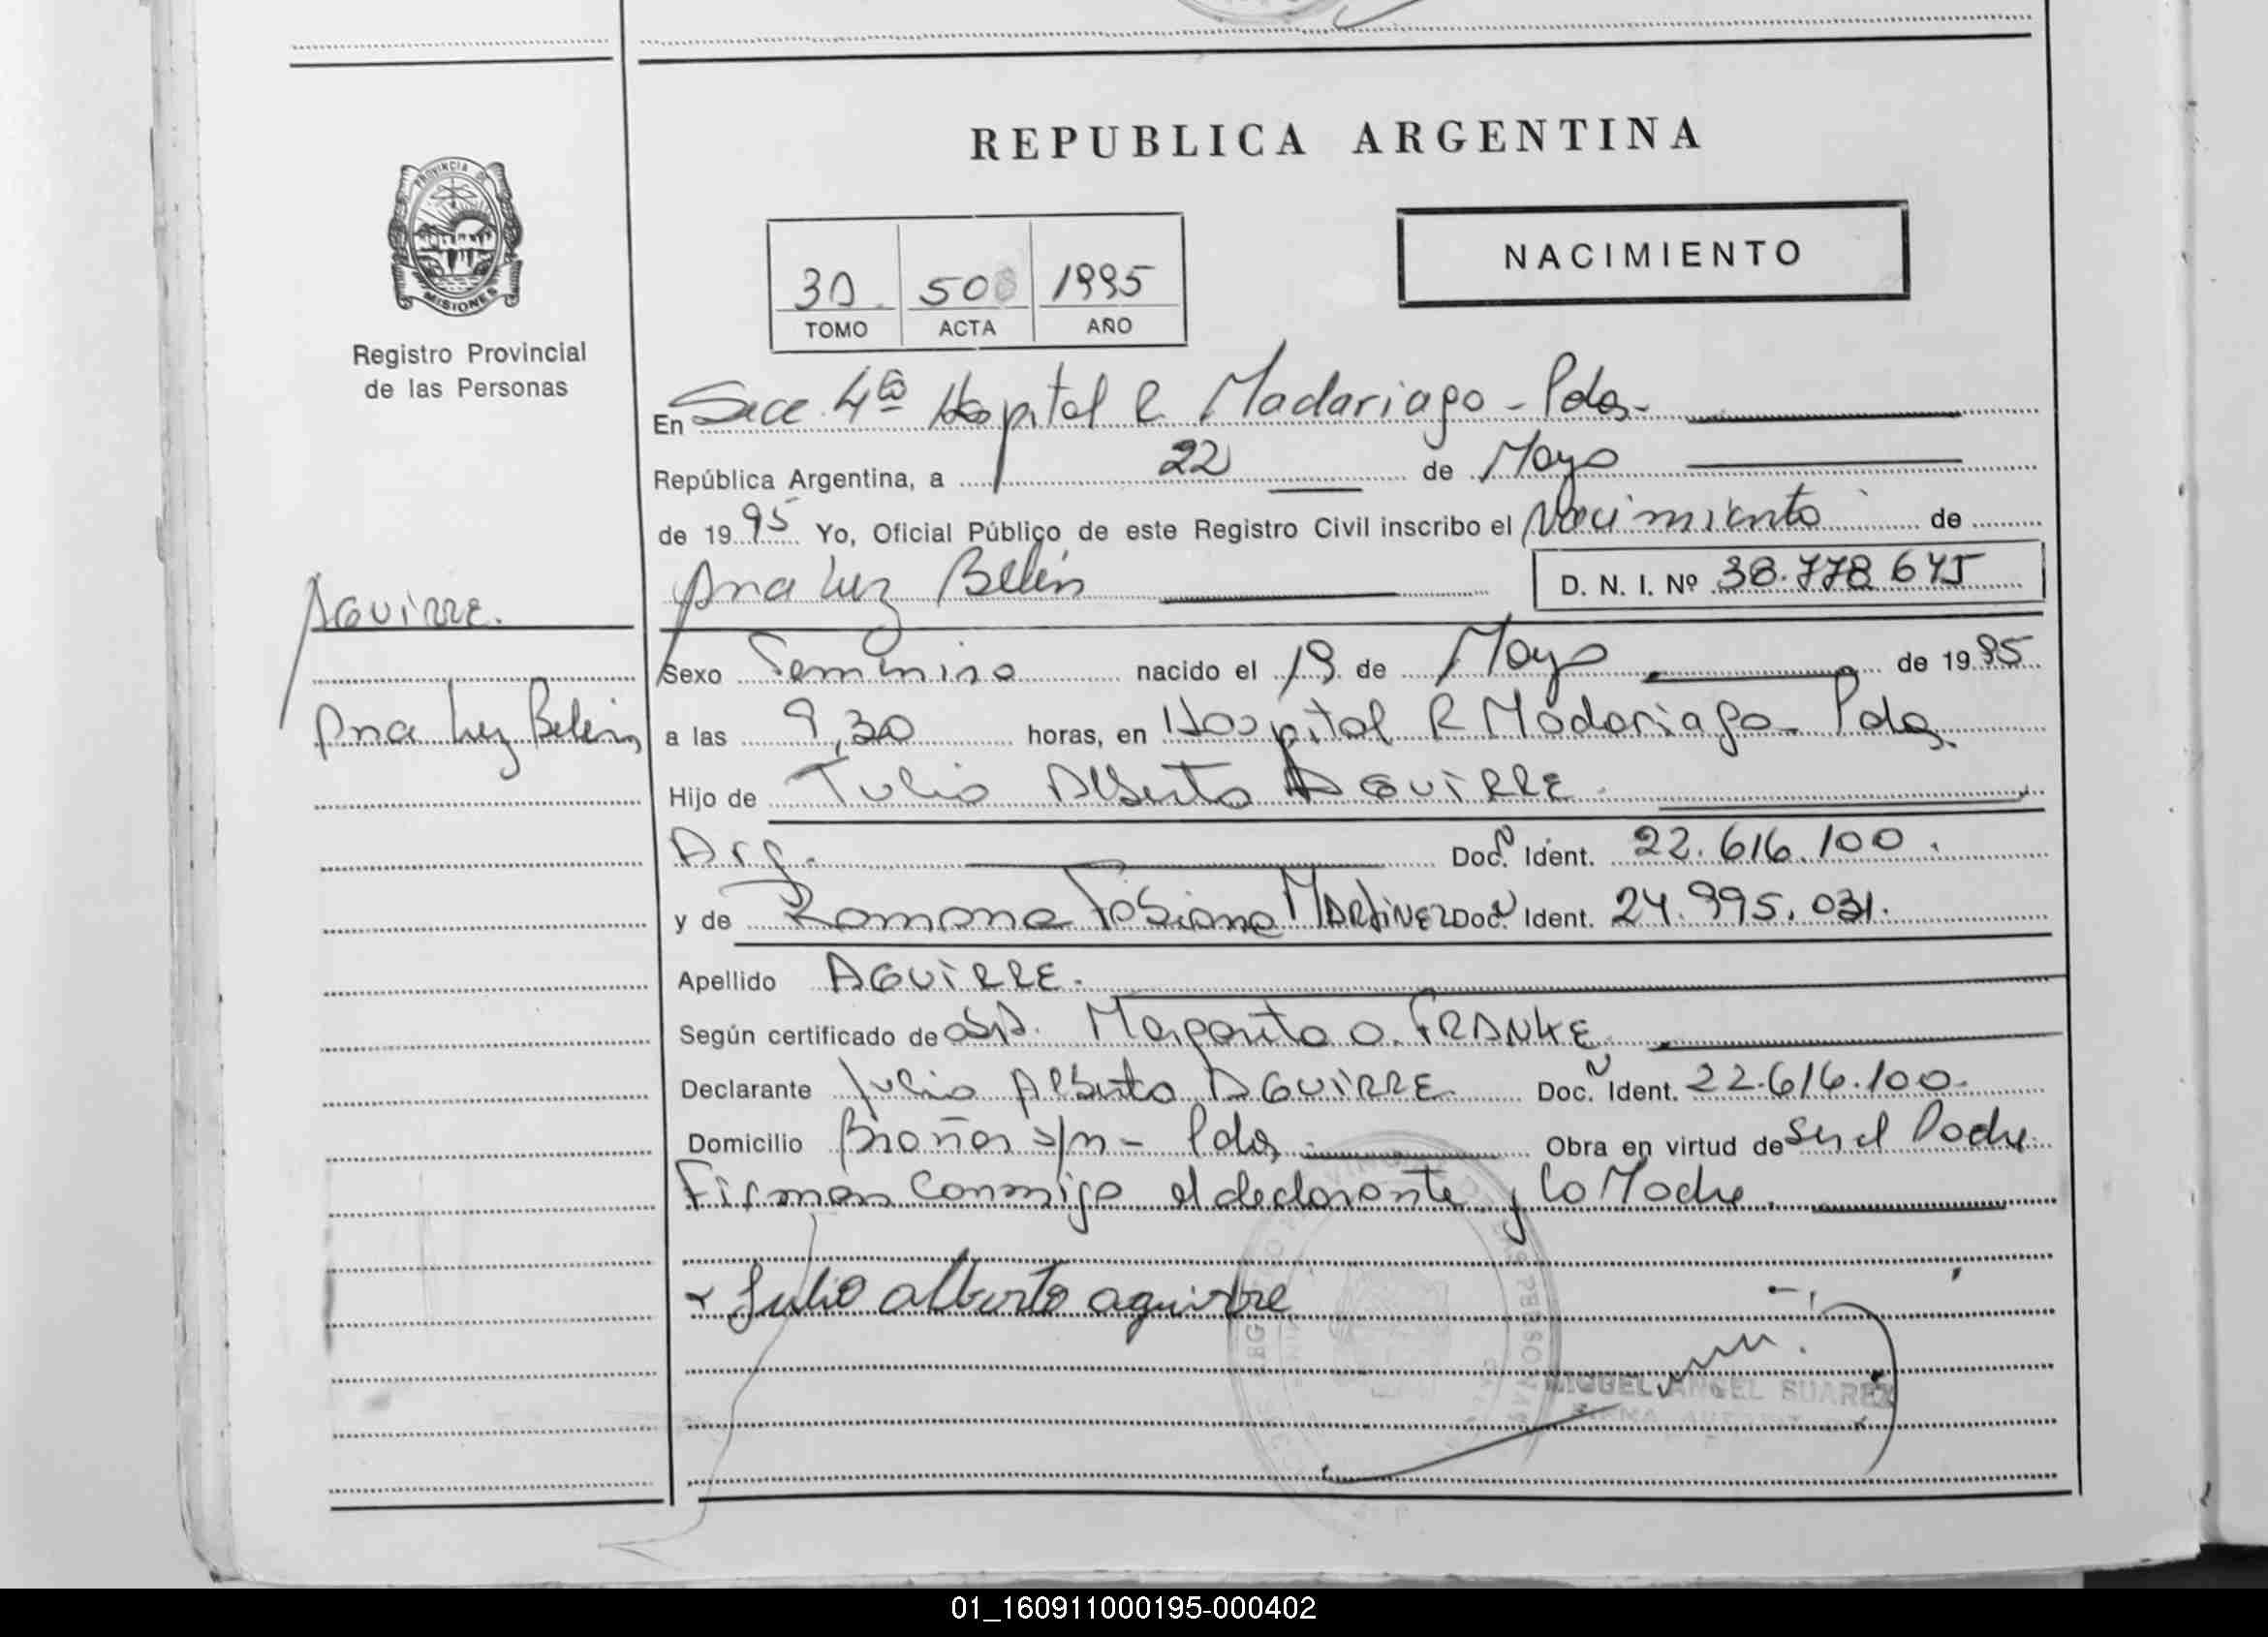 REPUBLICA ARGENTINA
NACIMIENTO
PROVINCIA DE
MISIONES
Registro Provincial
de las Personas
30 50 1995
TOMO ACTA AÑO
En Secc 4ta Hospital R Madariaga - Pdas-
República Argentina, a 22 de Mayo
de 1995 Yo, Oficial Público de este Registro Civil inscribo el Nacimiento de
Ana Luz Belén D. N. I. Nº 38.778.645
AGUIRRE.
Ana Luz Belén
Sexo Femenino nacido el 19 de Mayo de 1995
a las 9,30 horas, en Hospital R Madariaga - Pdas.
Hijo de Julio Alberto AGUIRRE.
Arg. Doc. Ident. 22.616.100.
y de Ramona Fabiana MARTINEZ Doc. Ident. 24.995.031.
Apellido AGUIRRE.
Según certificado de Obst. Margarita O. FRANKE
Declarante Julio Alberto AGUIRRE Doc. Ident. 22.616.100.
Domicilio s/n - Pdas. Obra en virtud de Ser el Padre
Firman conmigo el declarante y la Madre.
Julio alberto aguirre
MIGUEL ANGEL SUAREZ
01_160911000195-000402